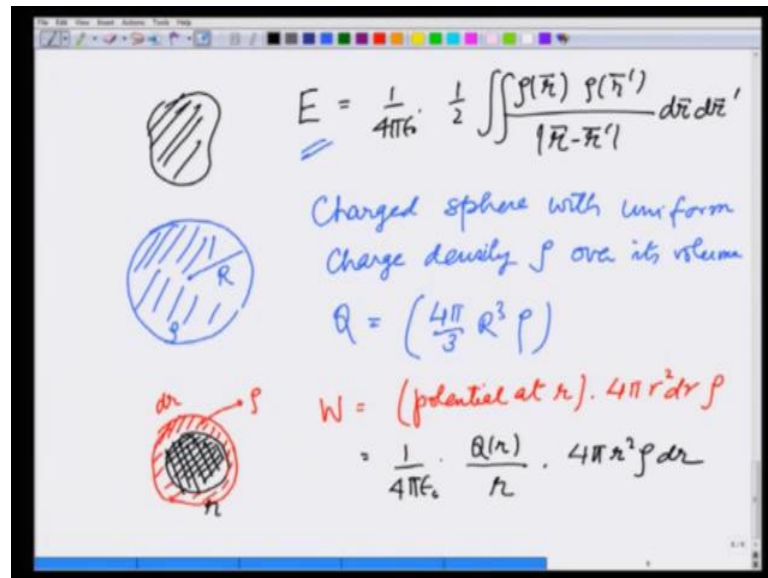 File Edit View Insert Actions Tools Help
E = 1/4πϵ₀ · 1/2 ∬ ρ(r̄) ρ(r̄′) / |r̄-r̄′| dr̄ dr̄′
Charged sphere with uniform
Charge density ρ over its volume
R
ρ
Q = (4π/3 R³ ρ)
dr
ρ
W = (potential at r) · 4πr²dr ρ
= 1/4πϵ₀ · Q(r)/r · 4πr²ρdr
r